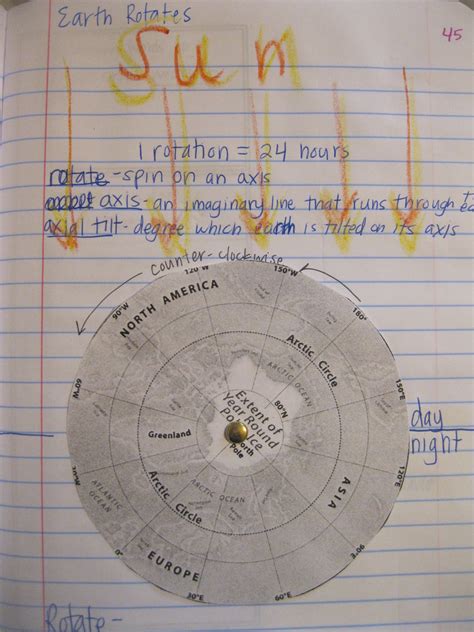 Earth Rotates
45
Sun
1 rotation = 24 hours
rotate - spin on an axis
axis - an imaginary line that runs through
axial tilt - degree which earth is tilted on its axis
counter-clockwise
120°W
150°W
180°
90°W
NORTH AMERICA
Arctic Circle
150°E
60°W
ARCTIC OCEAN
80°N
Extent of
Year Round
Polar Ice
day
Greenland
North
Pole
night
120°E
ASIA
Arctic Circle
ARCTIC OCEAN
Arctic Circle
ATLANTIC
OCEAN
90°E
EUROPE
30°
60°E
Rotate -